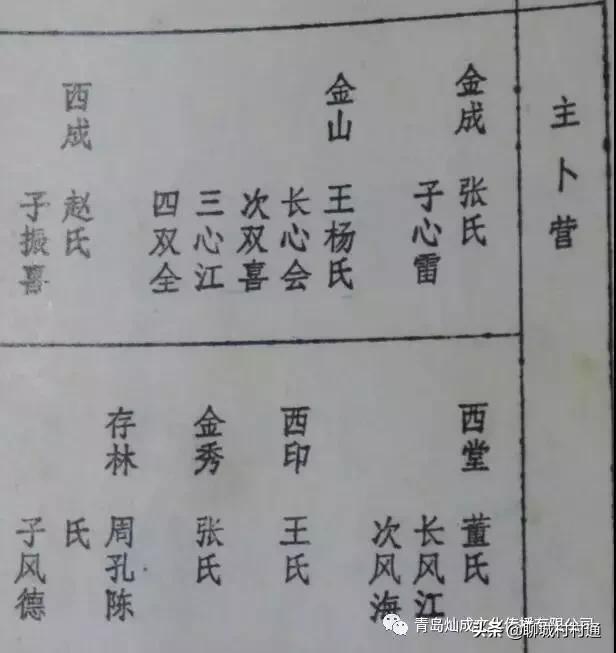 主卜营
金成 张氏
子心雷
金山 王杨氏
长心会
次双喜
三心江
四双全
西成 赵氏
子振喜
西堂 董氏
长风江
次风海
西印 王氏
金秀 张氏
存林 周孔陈
氏
子风德
青岛灿成文化传播有限公司
头条@聊城村村通